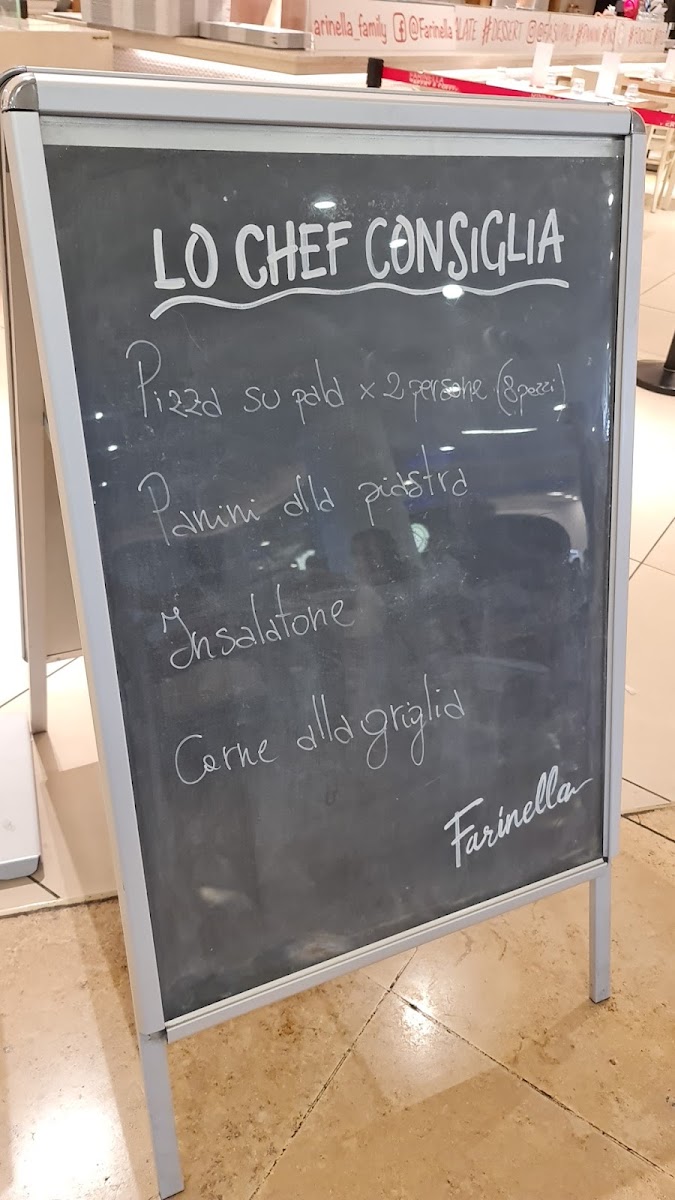 arinella_family @Farinella
#DESSERT
FARINELLA
LO CHEF CONSIGLIA
Pizza su pala x 2 persone (8 pezzi)
Panini alla piastra
Insalatone
Carne alla griglia
Farinella